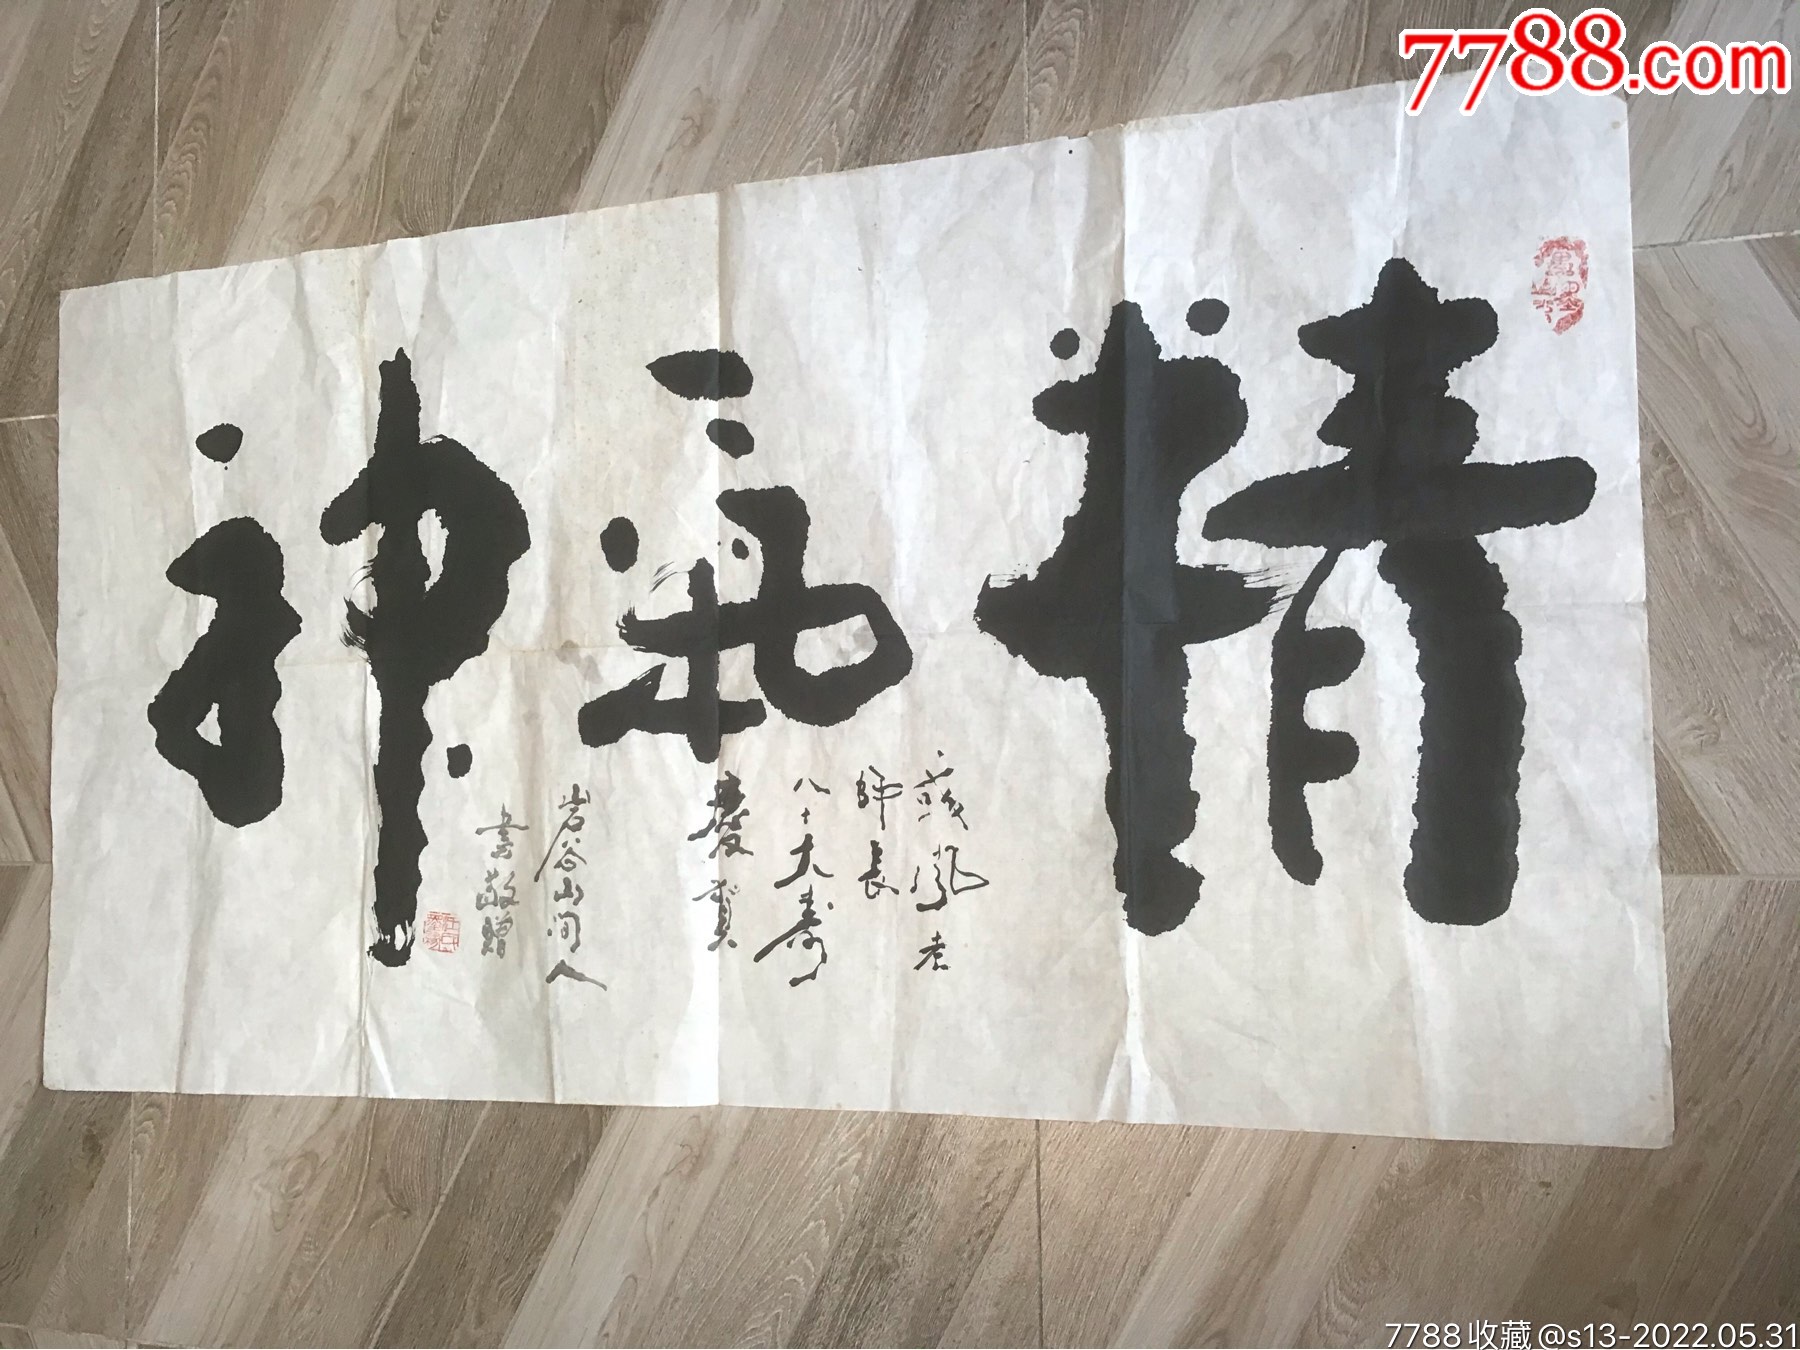 7788.com
精氣神
鳳老
師長
八十大壽
慶賀
岩谷山间人
書敬贈
7788收藏@s13-2022.05.31